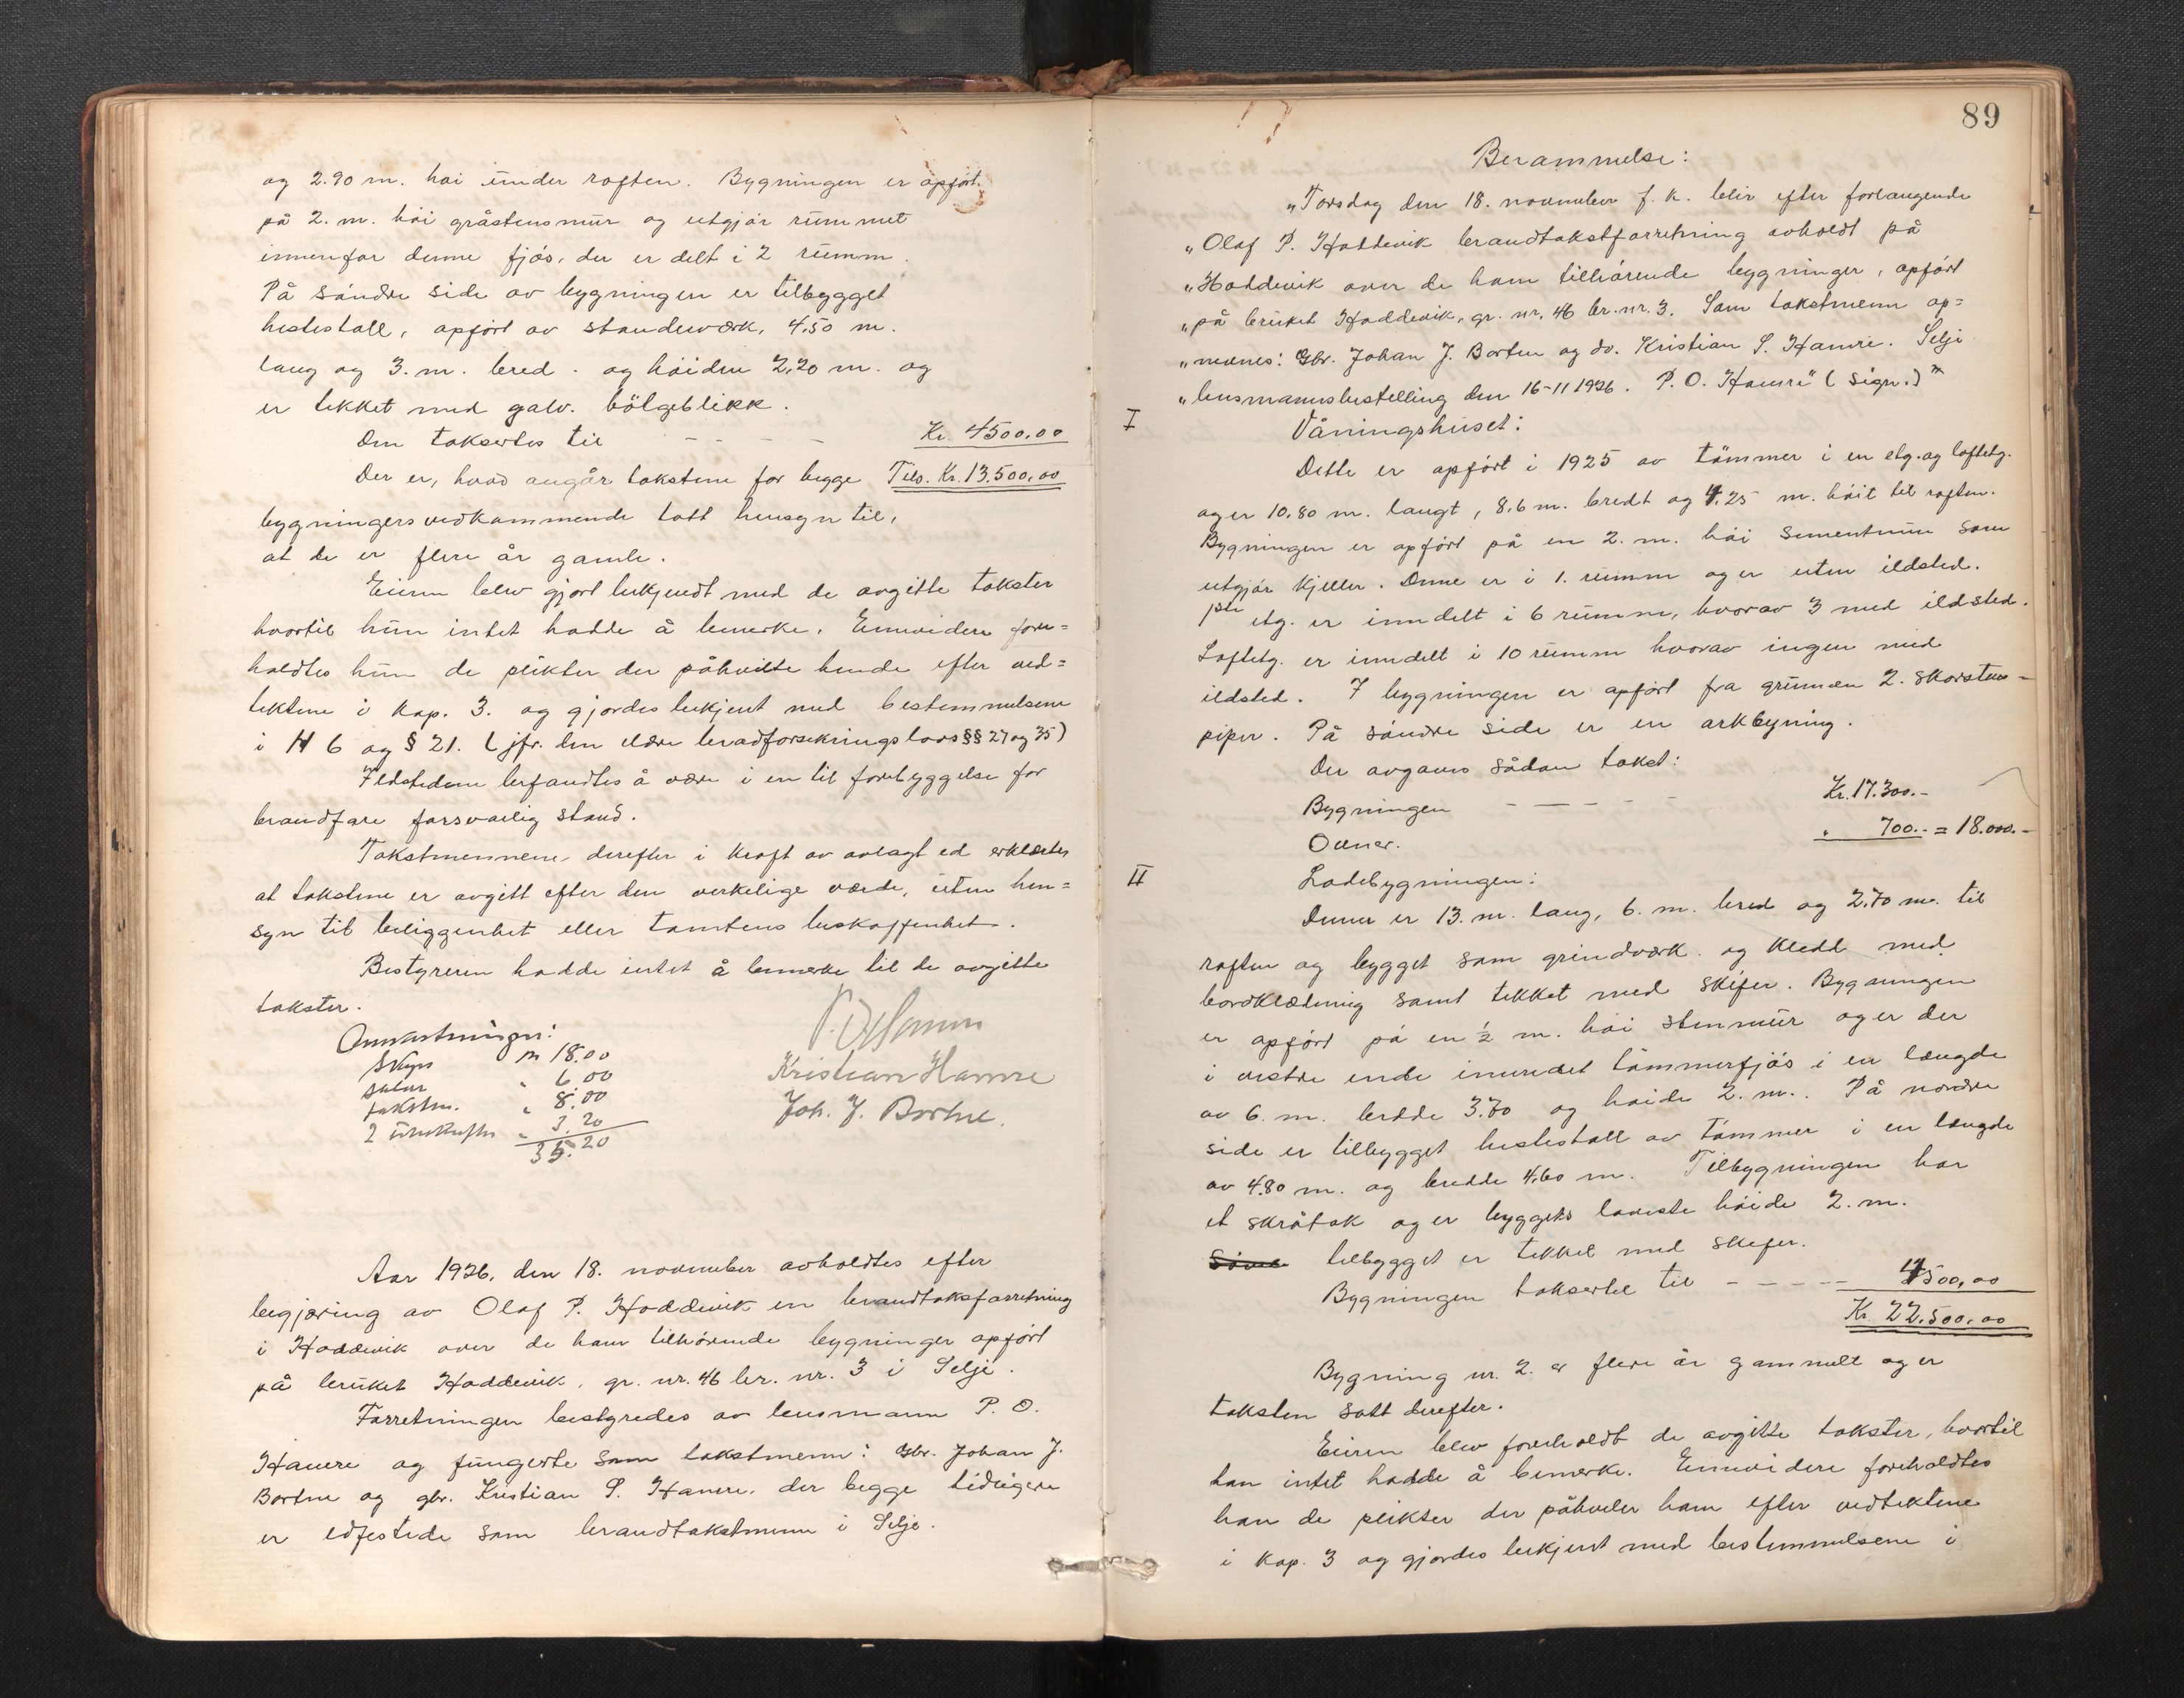 og 2.90 m. høi under raften. Bygningen er opført
på 2. m. høi gråstensmur og utgjør rummet
innenfor denne fjøs, der er delt i 2 rumm.
På søndre side av bygningen er tilbygget
hestestall, opført av standeværk, 4,50 m.
lang og 3. m. bred. og høiden 2,20 m. og
er tekket med galv. bølgeblikk.
Den taksertes til - - - - Kr. 4500,00
Der er, hvad angår takstene for begge Tils. Kr. 13.500,00
bygningers vedkommende tatt hensyn til,
at de er flere år gamle.
Eieren blev gjort bekjendt med de avgitte takster
hvortil hun intet hadde å bemerke. Ennvidere fore=
holdtes hun de plikter der påhvilte hende efter ved=
tektene i Kap. 3. og gjordes bekjent med bestemmelsene
i § 6 og § 21. (jfr. den eldre brandforsikringslovs §§ 27 og 35)
Ildstedene befandtes å være i en til forebyggelse for
brandfare forsvarlig stand.
Takstmennene derefter i kraft av avlagt ed erklærte
at takstene er avgitt efter den verkelige værde, uten hen=
syn til beliggenhet eller tomtens beskaffenhet.
Bestyreren hadde intet å bemerke til de avgitte
takster.
P. O. Hamre
Kristian Hamre
Joh. J. Bortne.
Omkostninger:
Skyss kr 18.00
salær " 6.00
takstm. " 8.00
2 utskrifter " 3.20
35.20
Aar 1926, den 18. november avholdtes efter
begjæring av Olaf P. Hoddevik en brandtakstforretning
i Hoddevik over de ham tilhørende bygninger opført
på bruket Hoddevik, gr. nr. 46 br. nr. 3 i Selje.
Forretningen bestyredes av lensmann P. O.
Hamre og fungerte som takstmenn: Gbr. Johan J.
Bortne og gbr. Kristian S. Hamre, der begge tidligere
er edfestede som brandtakstmenn i Selje.
89
Berammelse:
„Torsdag den 18. november f. k. blir efter forlangende
„Olaf P. Hoddevik brandtakstforretning avholdt på
„Hoddevik over de ham tilhørende bygninger, opført
„på bruket Hoddevik, gr. nr. 46 br. nr. 3. Som takstmenn op=
„nevnes: Gbr. Johan J. Bortne og do. Kristian S. Hamre. Selje
„lensmannsbestilling den 16-11 1926. P. O. Hamre" (sign.)"
I Våningshuset:
Dette er opført i 1925 av tømmer i en etg. og loftetg.
og er 10,80 m. langt, 8,6 m. bredt og 4,25 m. høit til raften.
Bygningen er opført på en 2. m. høi sementmur som
utgjør kjeller. Denne er i 1. rumm og er uten ildsted.
1ste etg. er inndelt i 6 rumm, hvorav 3 med ildsted.
Loftetg. er inndelt i 10 rumm hvorav ingen med
ildsted. I bygningen er opført fra grunnen 2. skorstens-
piper. På søndre side er en arkbyning.
Der avgaves sådan takst:
Bygningen - - - - - Kr. 17.300.-
Ovner. " 700.- = 18.000.-
II Ladebygningen:
Denne er 13. m. lang, 6. m. bred og 2,70 m. til
raften og bygget som grindværk og kledd med
bordklædning samt tekket med skifer. Bygningen
er opført på en ½ m. høi stenmur og er der
i vestre ende innredet tømmerfjøs i en længde
av 6. m. bredde 3.70 og høide 2. m.. På nordre
side er tilbygget hestestall av tømmer i en længde
av 4.80 m. og bredde 4,60 m. Tilbygningen har
et skråtak og er byggets laveste høide 2. m.
tilbygget er tekket med skifer.
Bygningen taksertes til - - - - - 4500,00
Kr. 22.500,00
Bygning nr. 2. er flere år gammelt og er
taksten satt derefter.
Eieren blev foreholdt de avgitte takster, hvortil
han intet hadde å bemerke. Ennvidere foreholdtes
han de plikter der påhviler ham efter vedtektene
i Kap. 3 og gjordes bekjent med bestemmelsene i